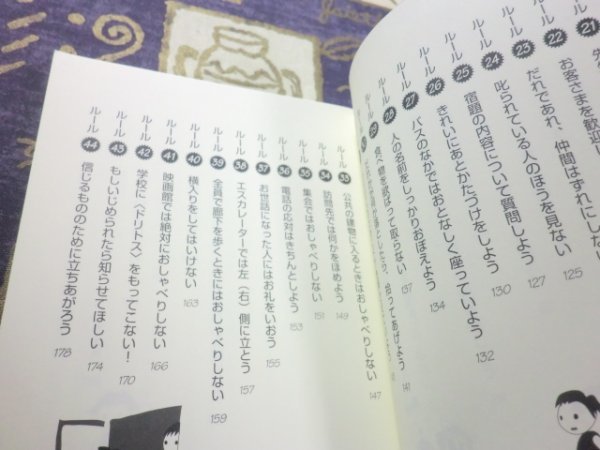 21
ルール 22 お客さまを歓迎
ルール 23 だれであれ、仲間はずれにしない 125
ルール 24 叱られている人のほうを見ない 127
ルール 25 宿題の内容について質問しよう 130
ルール 26 きれいにあとかたづけをしよう 132
ルール 27 バスのなかではおとなしく座っていよう
ルール 28 人の名前をしっかりおぼえよう 134
ルール 29 食べ物を欲ばって取らない 137
落としたら、拾ってあげよう 141
ルール 33 公共の建物に入るときはおしゃべりしない 147
ルール 34 訪問先では何かをほめよう 149
ルール 35 集会ではおしゃべりしない 151
ルール 36 電話の応対はきちんとしよう 153
ルール 37 お世話になった人にはお礼をいおう 155
ルール 38 エスカレーターでは左(右)側に立とう 157
ルール 39 全員で廊下を歩くときにはおしゃべりしない 159
ルール 40 横入りをしてはいけない 163
ルール 41 映画館では絶対におしゃべりしない 166
ルール 42 学校に〈ドリトス〉をもってこない! 170
ルール 43 もしいじめられたら知らせてほしい 174
ルール 44 信じるもののために立ちあがろう 178